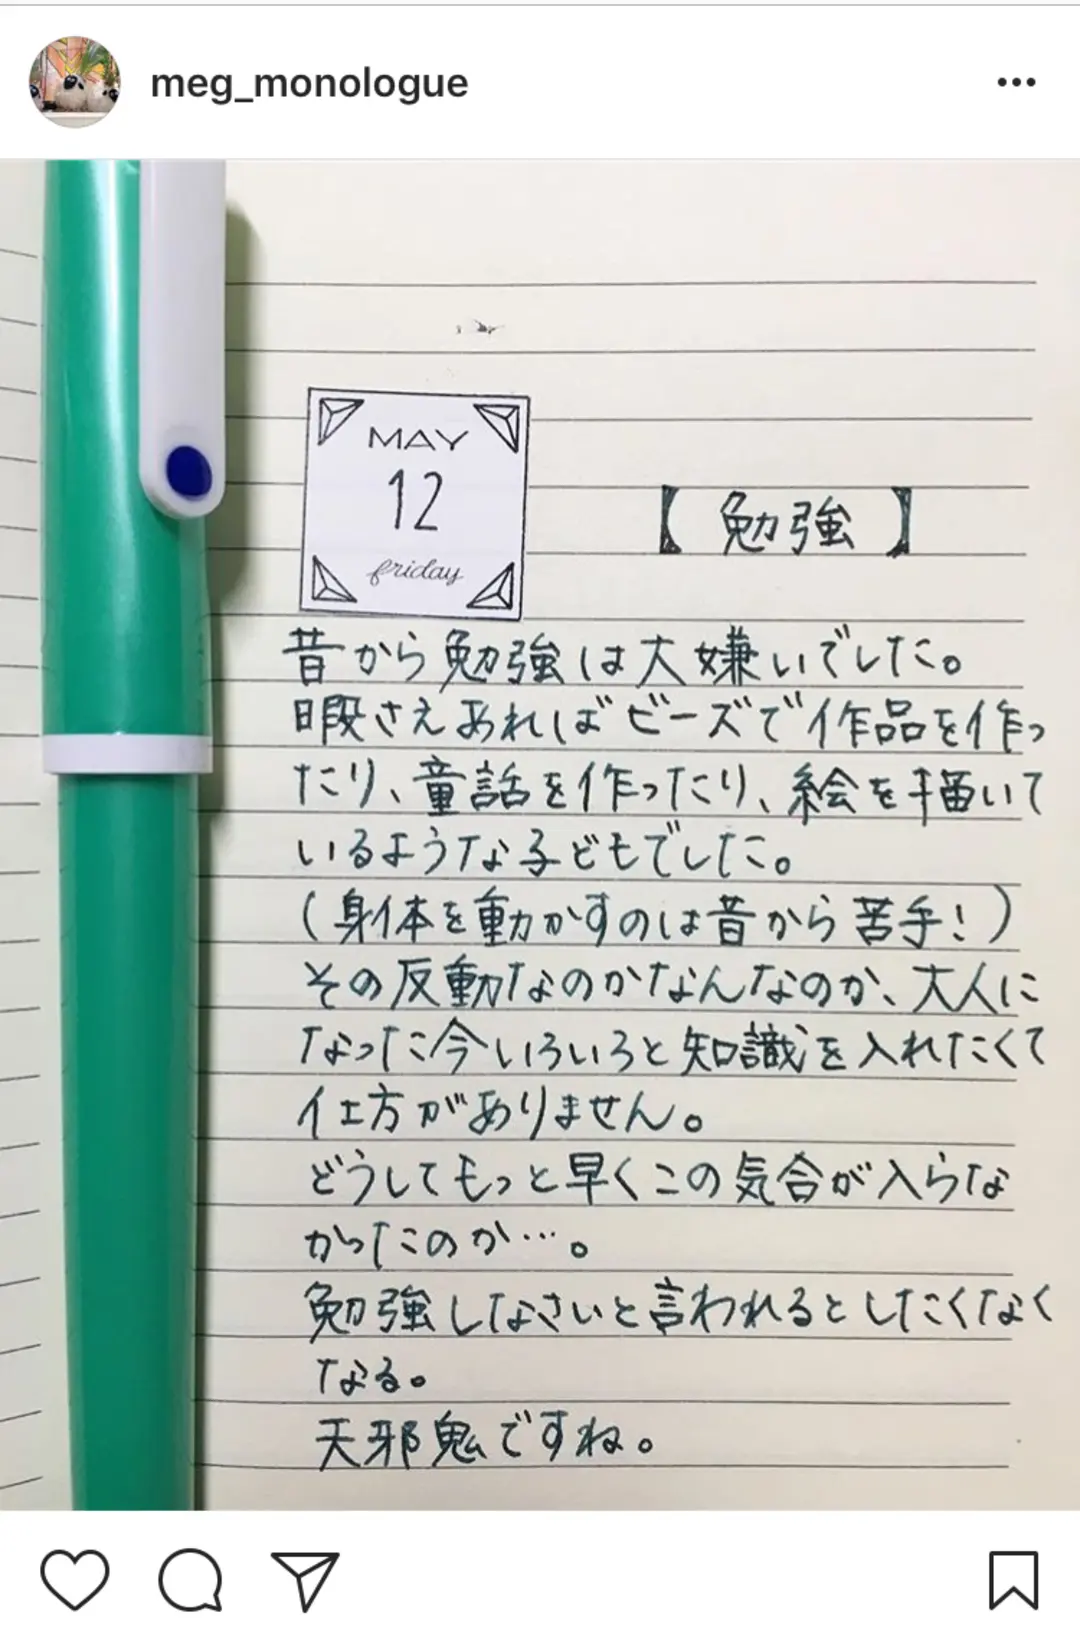 meg_monologue
MAY
12
friday
【 勉強 】
昔から勉強は大嫌いでした。
暇さえあればビーズで作品を作っ
たり、童話を作ったり、絵を描いて
いるような子どもでした。
(身体を動かすのは昔から苦手!)
その反動なのかなんなのか、大人に
なった今いろいろと知識を入れたくて
仕方がありません。
どうしてもっと早くこの気合が入らな
かったのか…。
勉強しなさいと言われるとしたくなく
なる。
天邪鬼ですね。